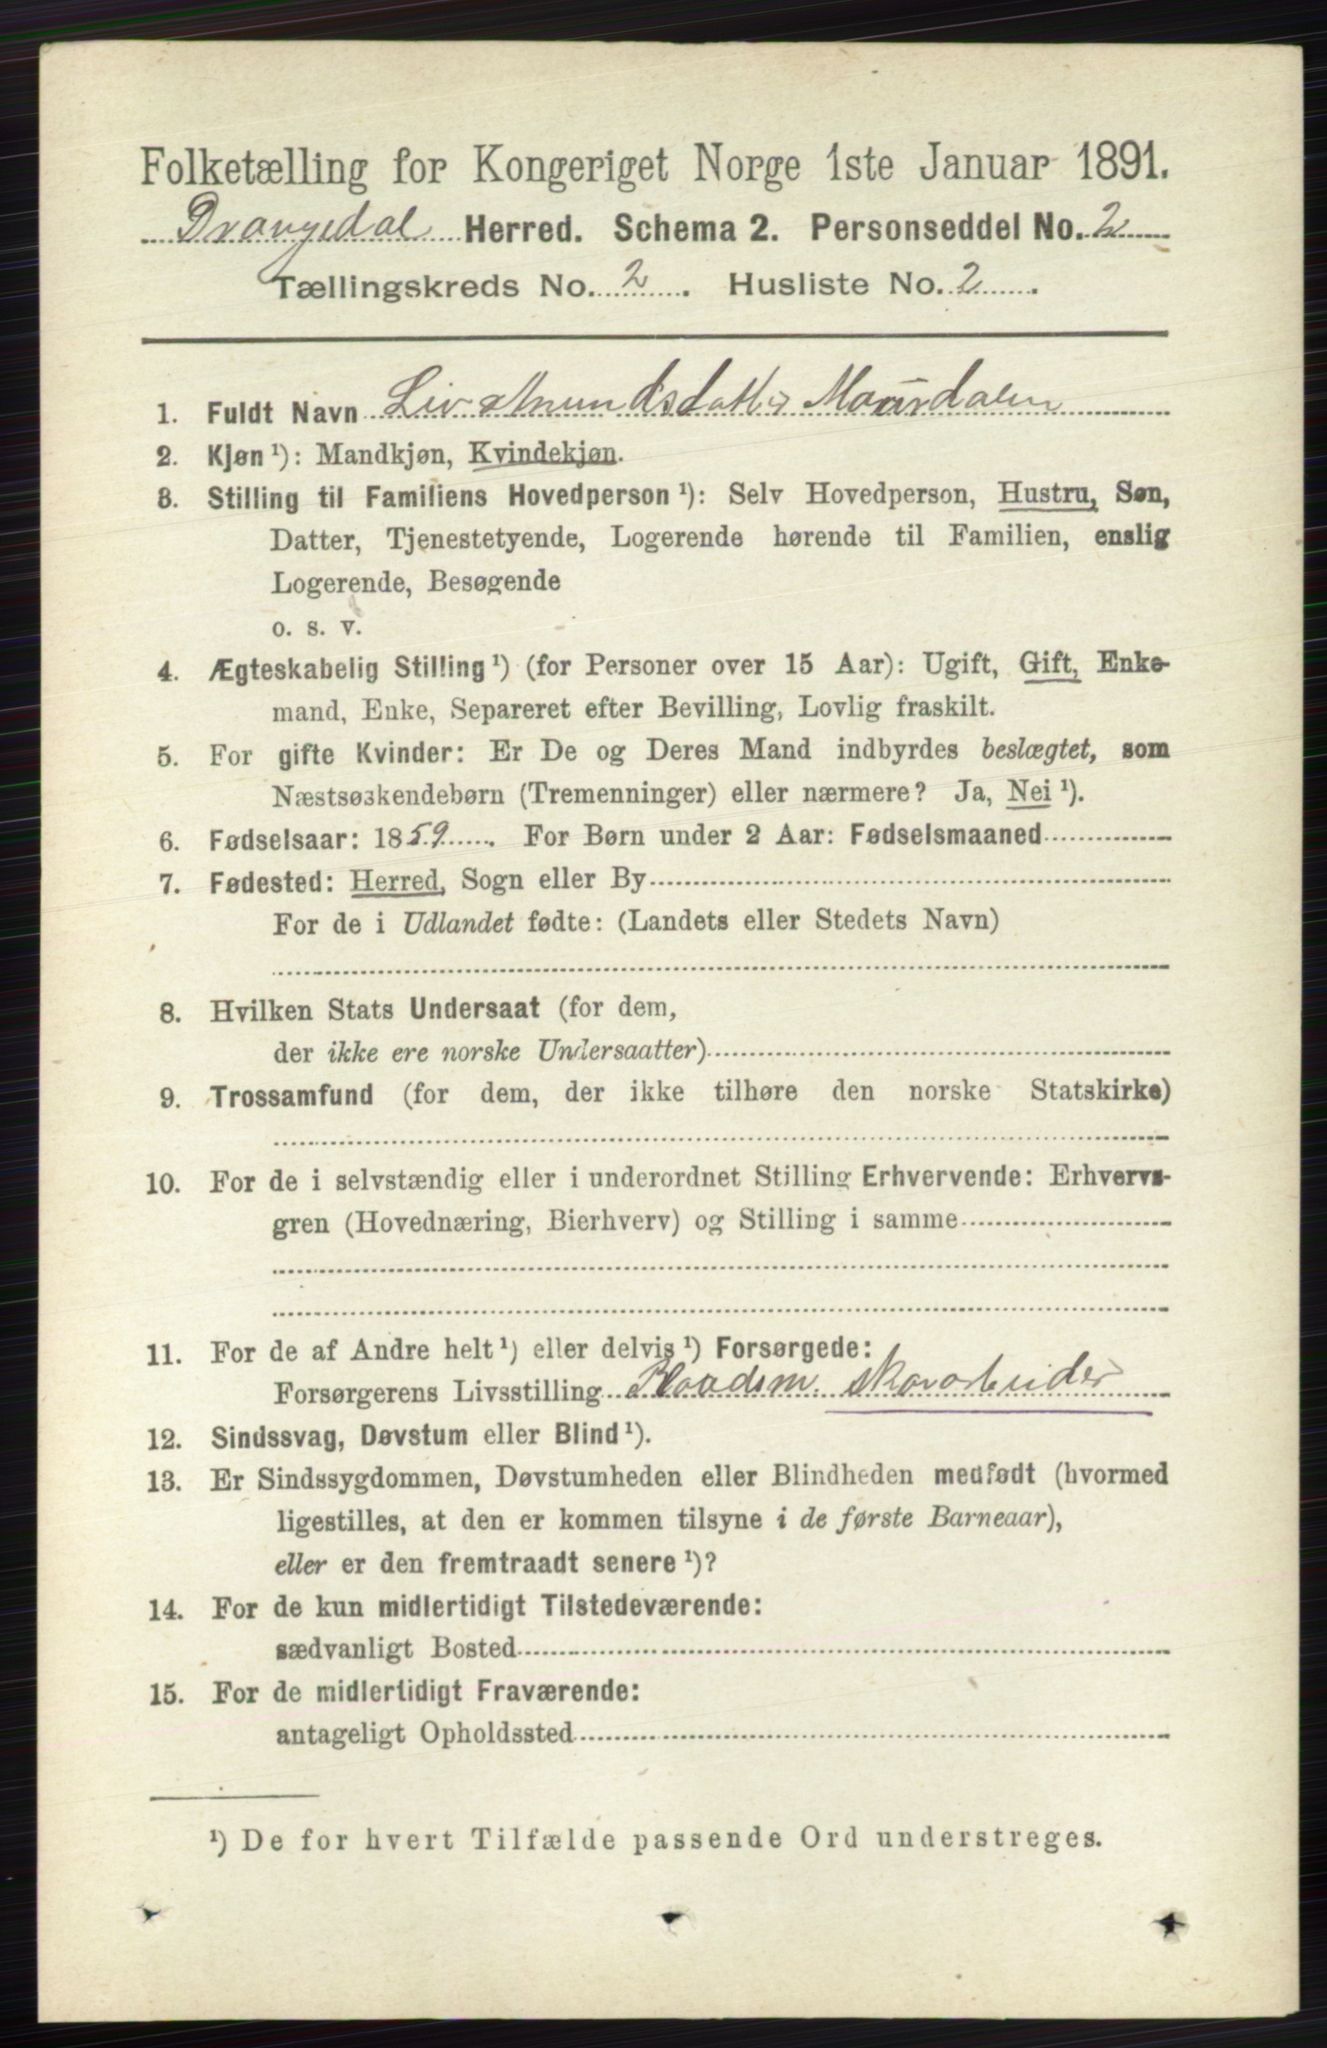 Folketælling for Kongeriget Norge 1ste Januar 1891.
Drangedal Herred. Schema 2. Personseddel No. 2
Tællingskreds No. 2. Husliste No. 2.
1. Fuldt Navn Liv Amundsdatter Maurdalen
2. Kjøn ¹): Mandkjøn, Kvindekjøn.
3. Stilling til Familiens Hovedperson ¹): Selv Hovedperson, Hustru, Søn,
Datter, Tjenestetyende, Logerende hørende til Familien, enslig
Logerende, Besøgende
o. s. v.
4. Ægteskabelig Stilling ¹) (for Personer over 15 Aar): Ugift, Gift, Enke-
mand, Enke, Separeret efter Bevilling, Lovlig fraskilt.
5. For gifte Kvinder: Er De og Deres Mand indbyrdes beslægtet, som
Næstsøskendebørn (Tremenninger) eller nærmere? Ja, Nei ¹).
6. Fødselsaar: 1859. For Børn under 2 Aar: Fødselsmaaned
7. Fødested: Herred, Sogn eller By
For de i Udlandet fødte: (Landets eller Stedets Navn)
8. Hvilken Stats Undersaat (for dem,
der ikke ere norske Undersaatter)
9. Trossamfund (for dem, der ikke tilhøre den norske Statskirke)
10. For de i selvstændig eller i underordnet Stilling Erhvervende: Erhvervs-
gren (Hovednæring, Bierhverv) og Stilling i samme
11. For de af Andre helt ¹) eller delvis ¹) Forsørgede:
Forsørgerens Livsstilling Plaadsm. skovarbeider
12. Sindssvag, Døvstum eller Blind ¹).
13. Er Sindssygdommen, Døvstumheden eller Blindheden medfødt (hvormed
ligestilles, at den er kommen tilsyne i de første Barneaar),
eller er den fremtraadt senere ¹)?
14. For de kun midlertidigt Tilstedeværende:
sædvanligt Bosted
15. For de midlertidigt Fraværende:
antageligt Opholdssted
¹) De for hvert Tilfælde passende Ord understreges.